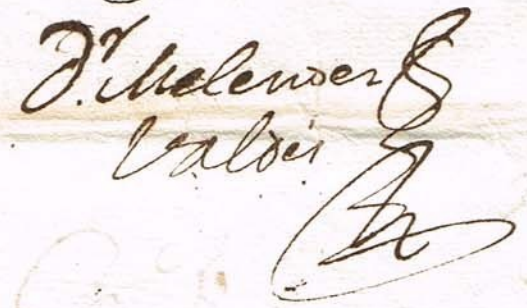 Dr. Melendez
Valdés